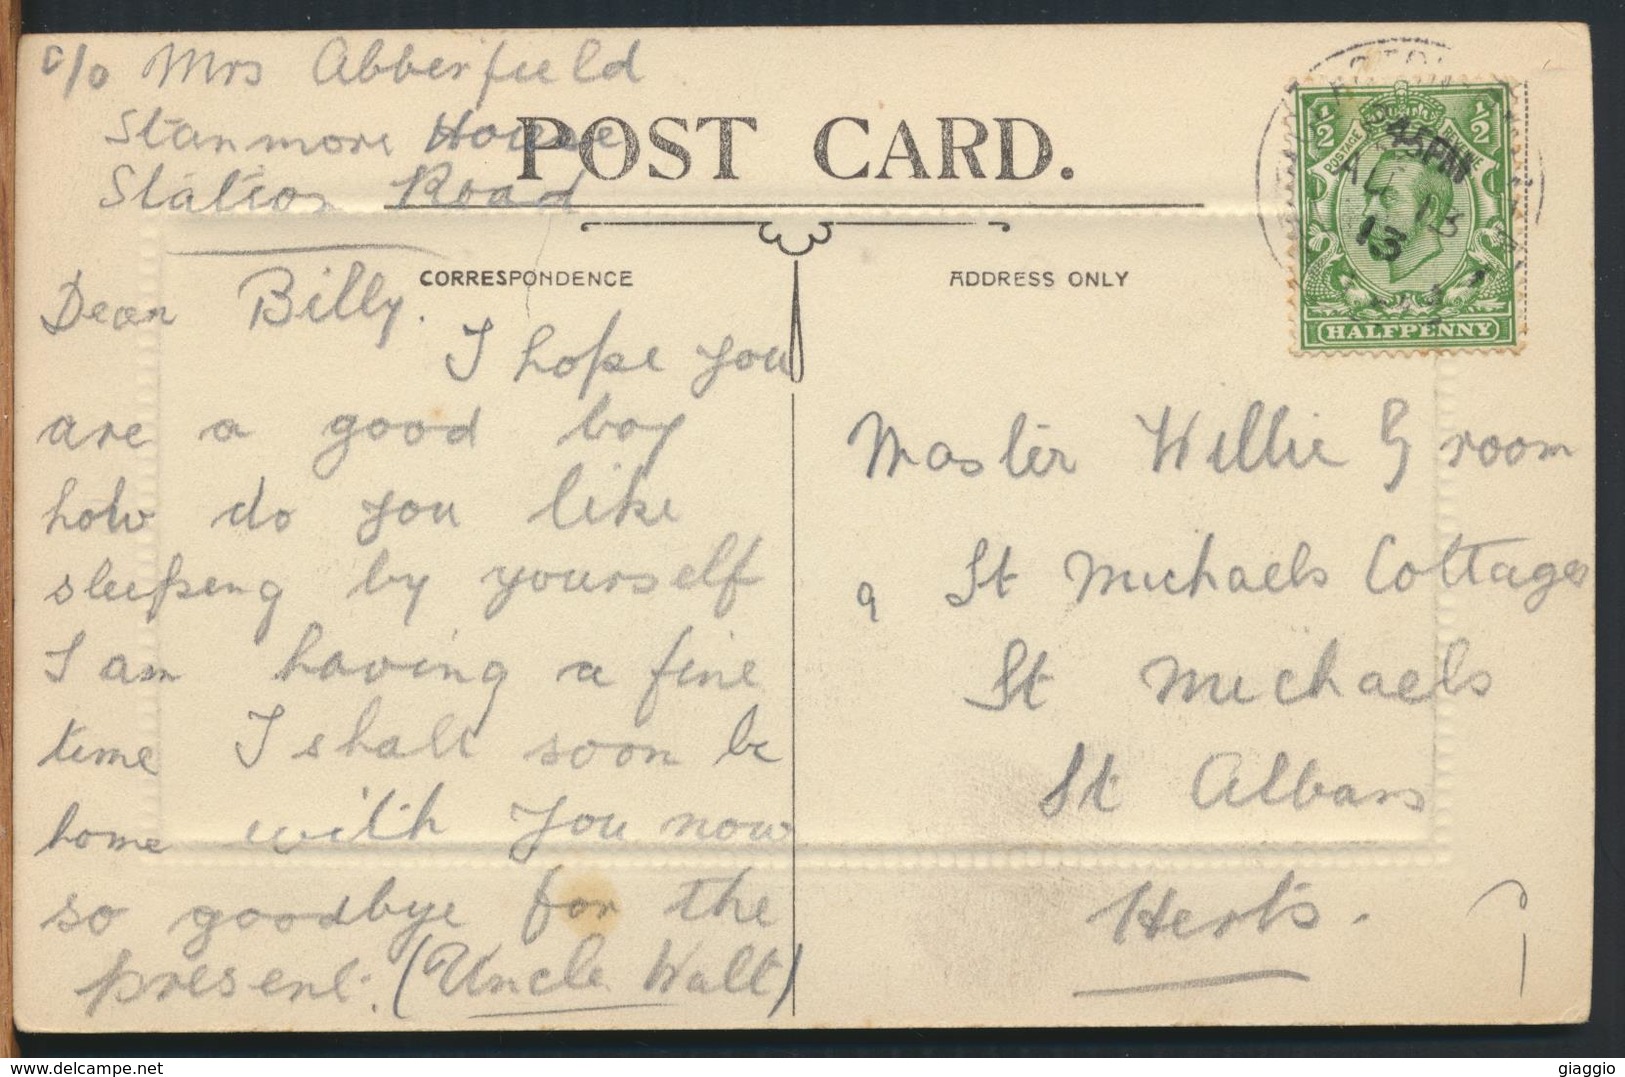 c/o Mrs Abberfield
Stanmore House
Station Road
POST CARD.
CORRESPONDENCE
ADDRESS ONLY
Dear Billy.
I hope you
are a good boy
how do you like
sleeping by yourself
I am having a fine
time I shall soon be
home with you now
so goodbye for the
present. (Uncle Walt)
Master Willie Groom
9 St Michaels Cottages
St Michaels
St Albans
Herts.
½ ½
POSTAGE REVENUE
HALFPENNY
45PM
AU 13
13
www.delcampe.net
giaggio